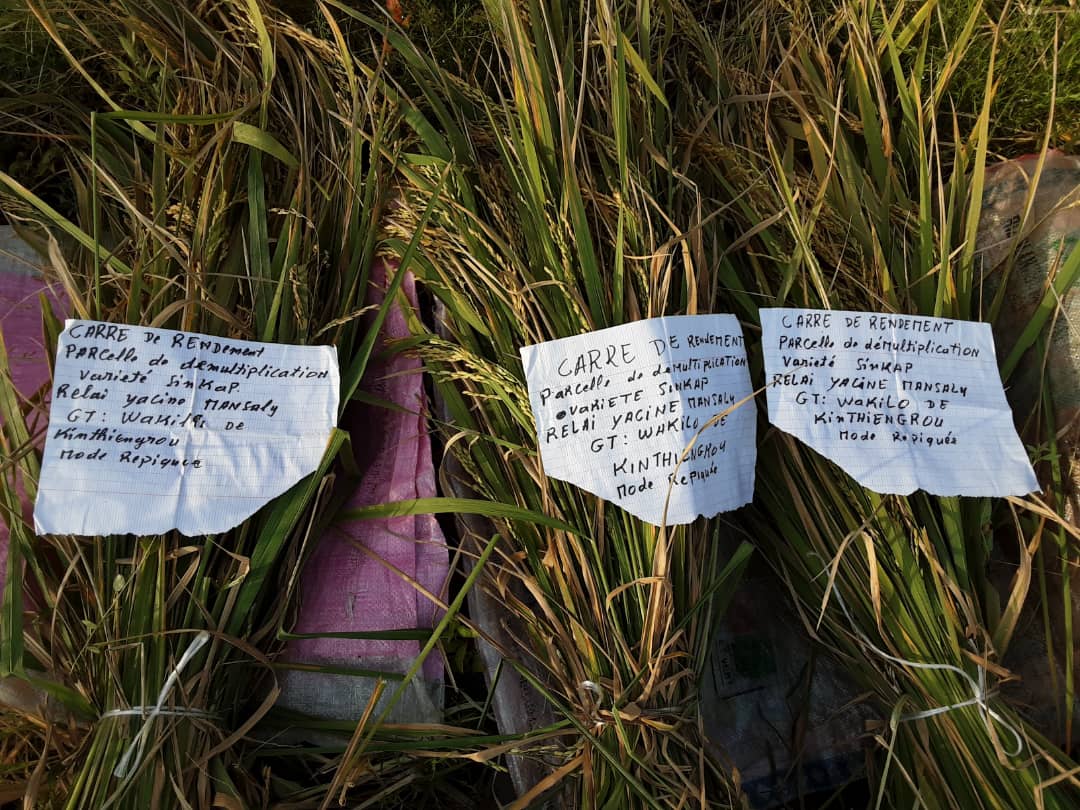 CARRE De RENDEment
PARCelle de demultiplication
Varieté SinKaP
Relai yacine MANSALY
GT: WaKilo De
Kinthiengrou
Mode Repiquée
CARRE DE RENDEMENT
Parcelle de demultiplication
VARIETE SINKAP
RELAI YACINE MANSALY
GT: WAKILO DE
KINTHIENGROU
Mode Repiquée
CARRE DE RENDEMENT
Parcelle de démultiplication
Varieté SinKAP
RELAI YACINE MANSALY
GT: WAKILO DE
KinTHIENGROU
Mode Repiquée